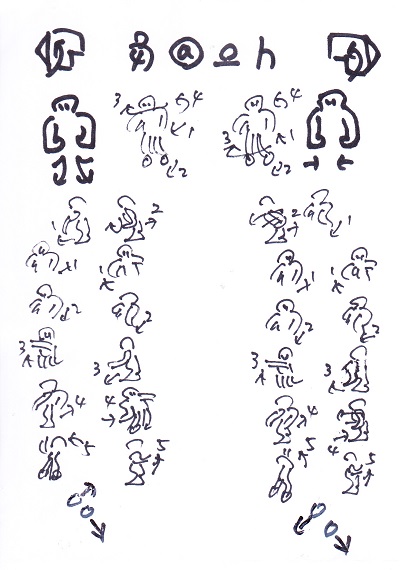 a h
3 4 4
1 3 1
2 2
2 2 1
1 1 1 1
2 2 2
3 3 3 3
4 4 4 4
5 5 5 5